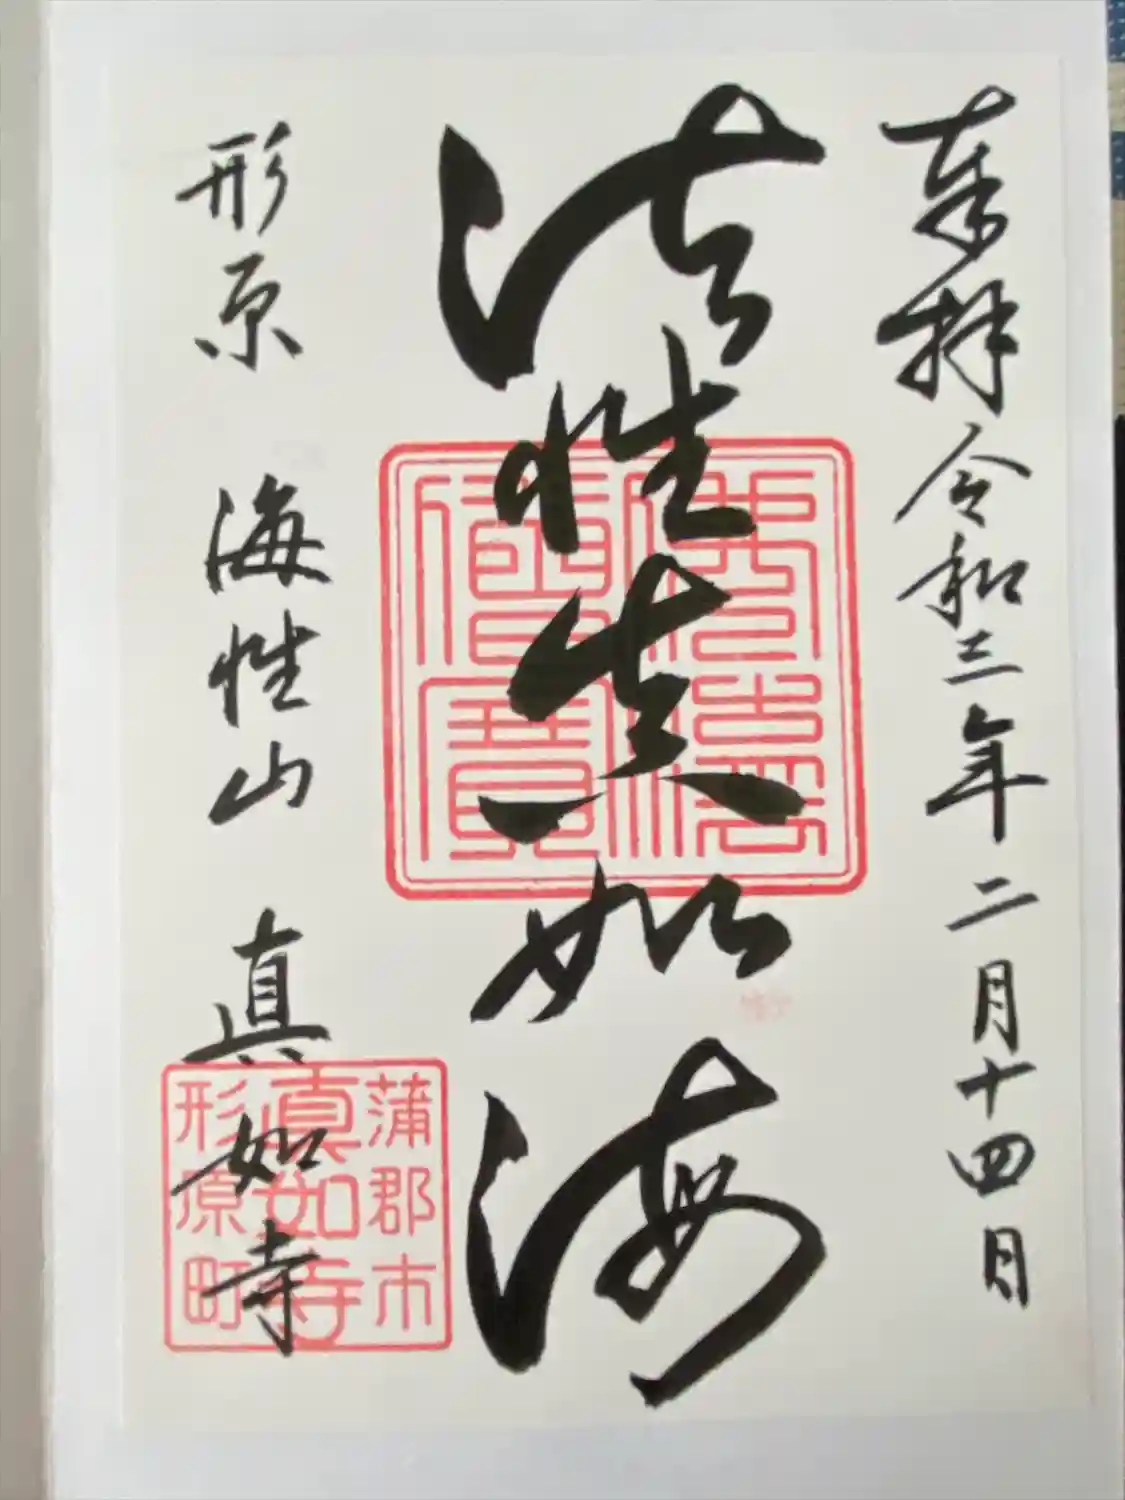 奉拝 令和三年二月十四日
法性真如海
形原 海性山 真如寺
蒲郡市
眞如寺
形原町